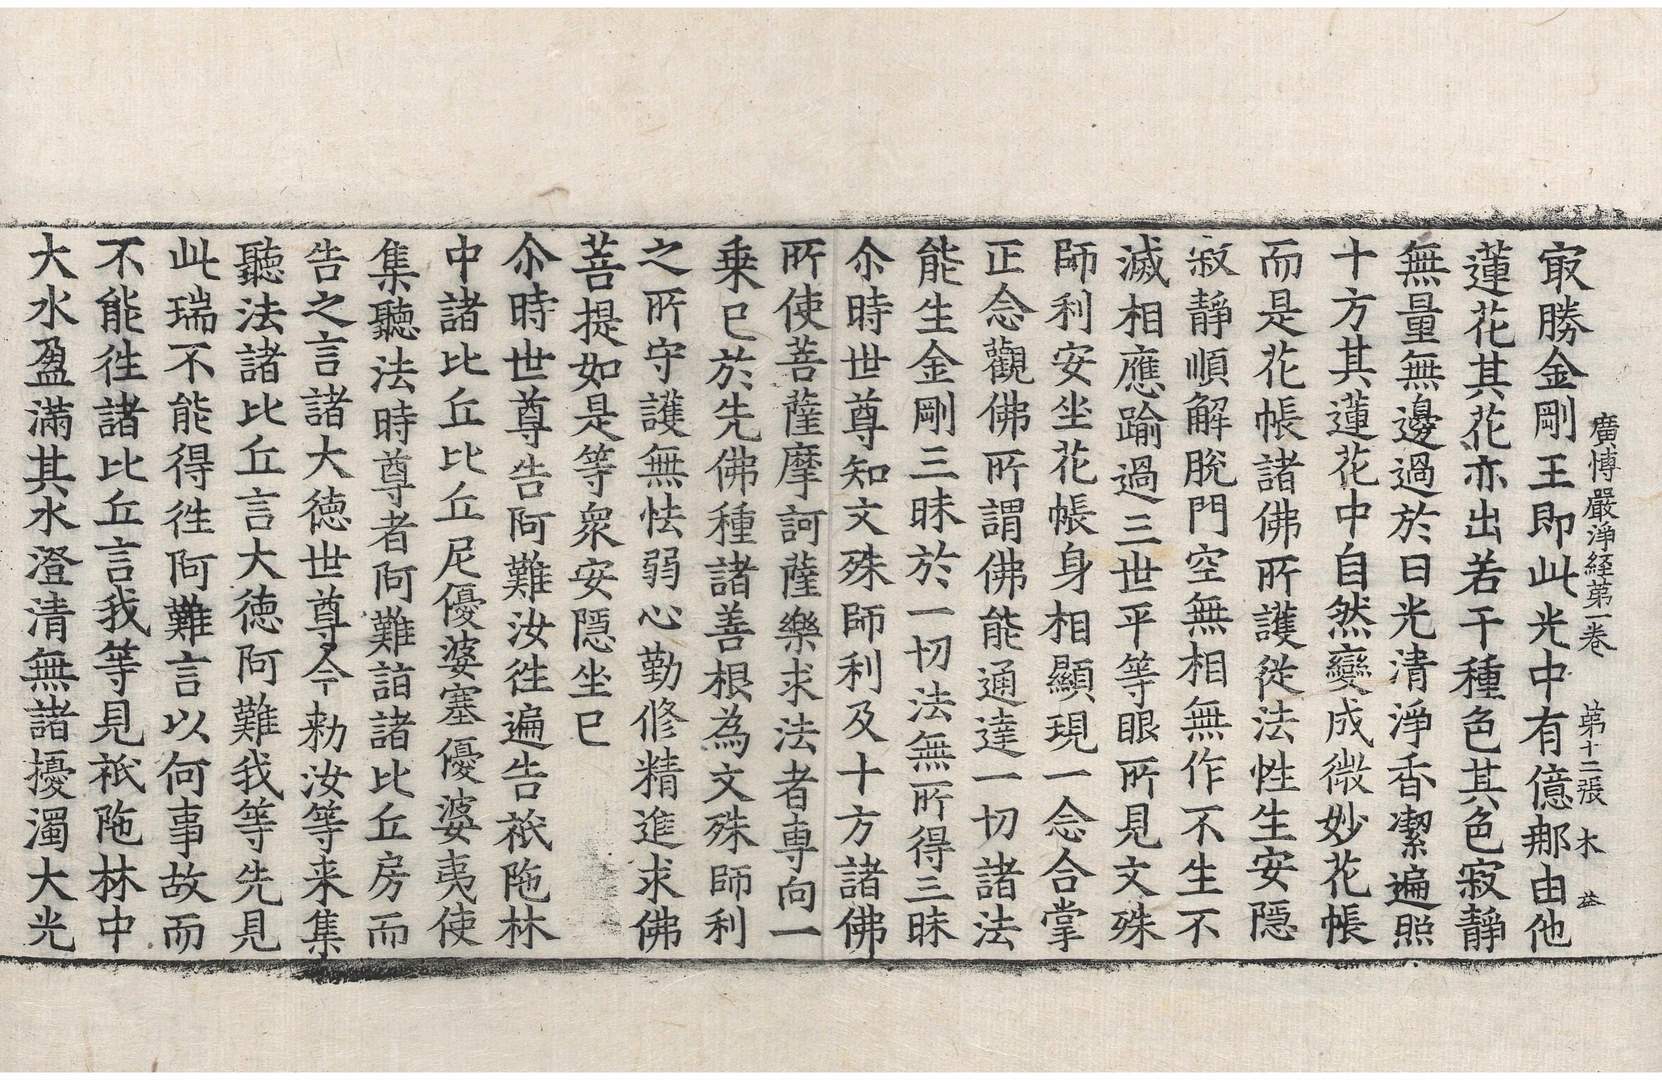 廣博嚴淨経第一卷 第十二張 木
㝡勝金剛王即此光中有億那由他
蓮花其花亦出若干種色其色寂靜
無量無邊過於日光清淨香潔遍照
十方其蓮花中自然變成微妙花帳
而是花帳諸佛所護從法性生安隱
寂靜順解脫門空無相無作不生不
滅相應踰過三世平等眼所見文殊
師利安坐花帳身相顯現一念合掌
正念觀佛所謂佛能通達一切諸法
能生金剛三昧於一切法無所得三昧
尒時世尊知文殊師利及十方諸佛
所使菩薩摩訶薩樂求法者専向一
乗已於先佛種諸善根為文殊師利
之所守護無怯弱心勤修精進求佛
菩提如是等衆安隱坐已
尒時世尊告阿難汝徃遍告祇陁林
中諸比丘比丘尼優婆塞優婆夷使
集聽法時尊者阿難詣諸比丘房而
告之言諸大徳世尊今勑汝等来集
聽法諸比丘言大徳阿難我等先見
此瑞不能得徃阿難言以何事故而
不能徃諸比丘言我等見祇陁林中
大水盈滿其水澄清無諸擾濁大光